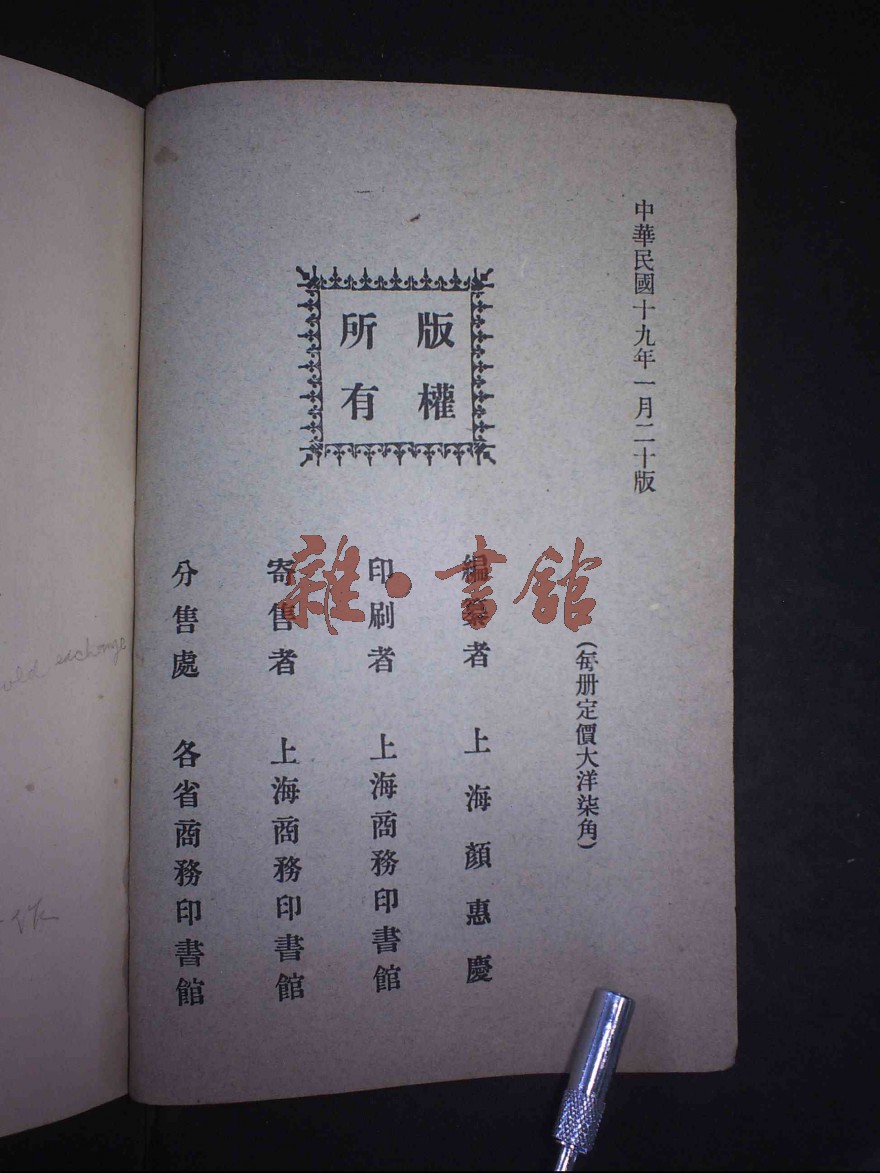 中華民國十九年一月二十版
(每册定價大洋柒角)
版權
所有
編纂者 上海顏惠慶
印刷者 上海商務印書館
寄售者 上海商務印書館
分售處 各省商務印書館
雜·書館
old exchange
作